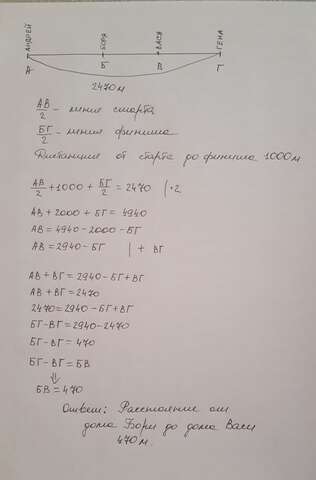 АНДРЕЙ БОРЯ ВАСЯ ГЕНА
А Б В Г
2470 м
АВ/2 - линия старта
БГ/2 - линия финиша
Дистанция от старта до финиша 1000 м
АВ/2 + 1000 + БГ/2 = 2470 | · 2
АВ + 2000 + БГ = 4940
АВ = 4940 - 2000 - БГ
АВ = 2940 - БГ | + ВГ
АВ + ВГ = 2940 - БГ + ВГ
АВ + ВГ = 2470
2470 = 2940 - БГ + ВГ
БГ - ВГ = 2940 - 2470
БГ - ВГ = 470
БГ - ВГ = БВ
⇓
БВ = 470
Ответ: Расстояние от
дома Бори до дома Васи
470 м.